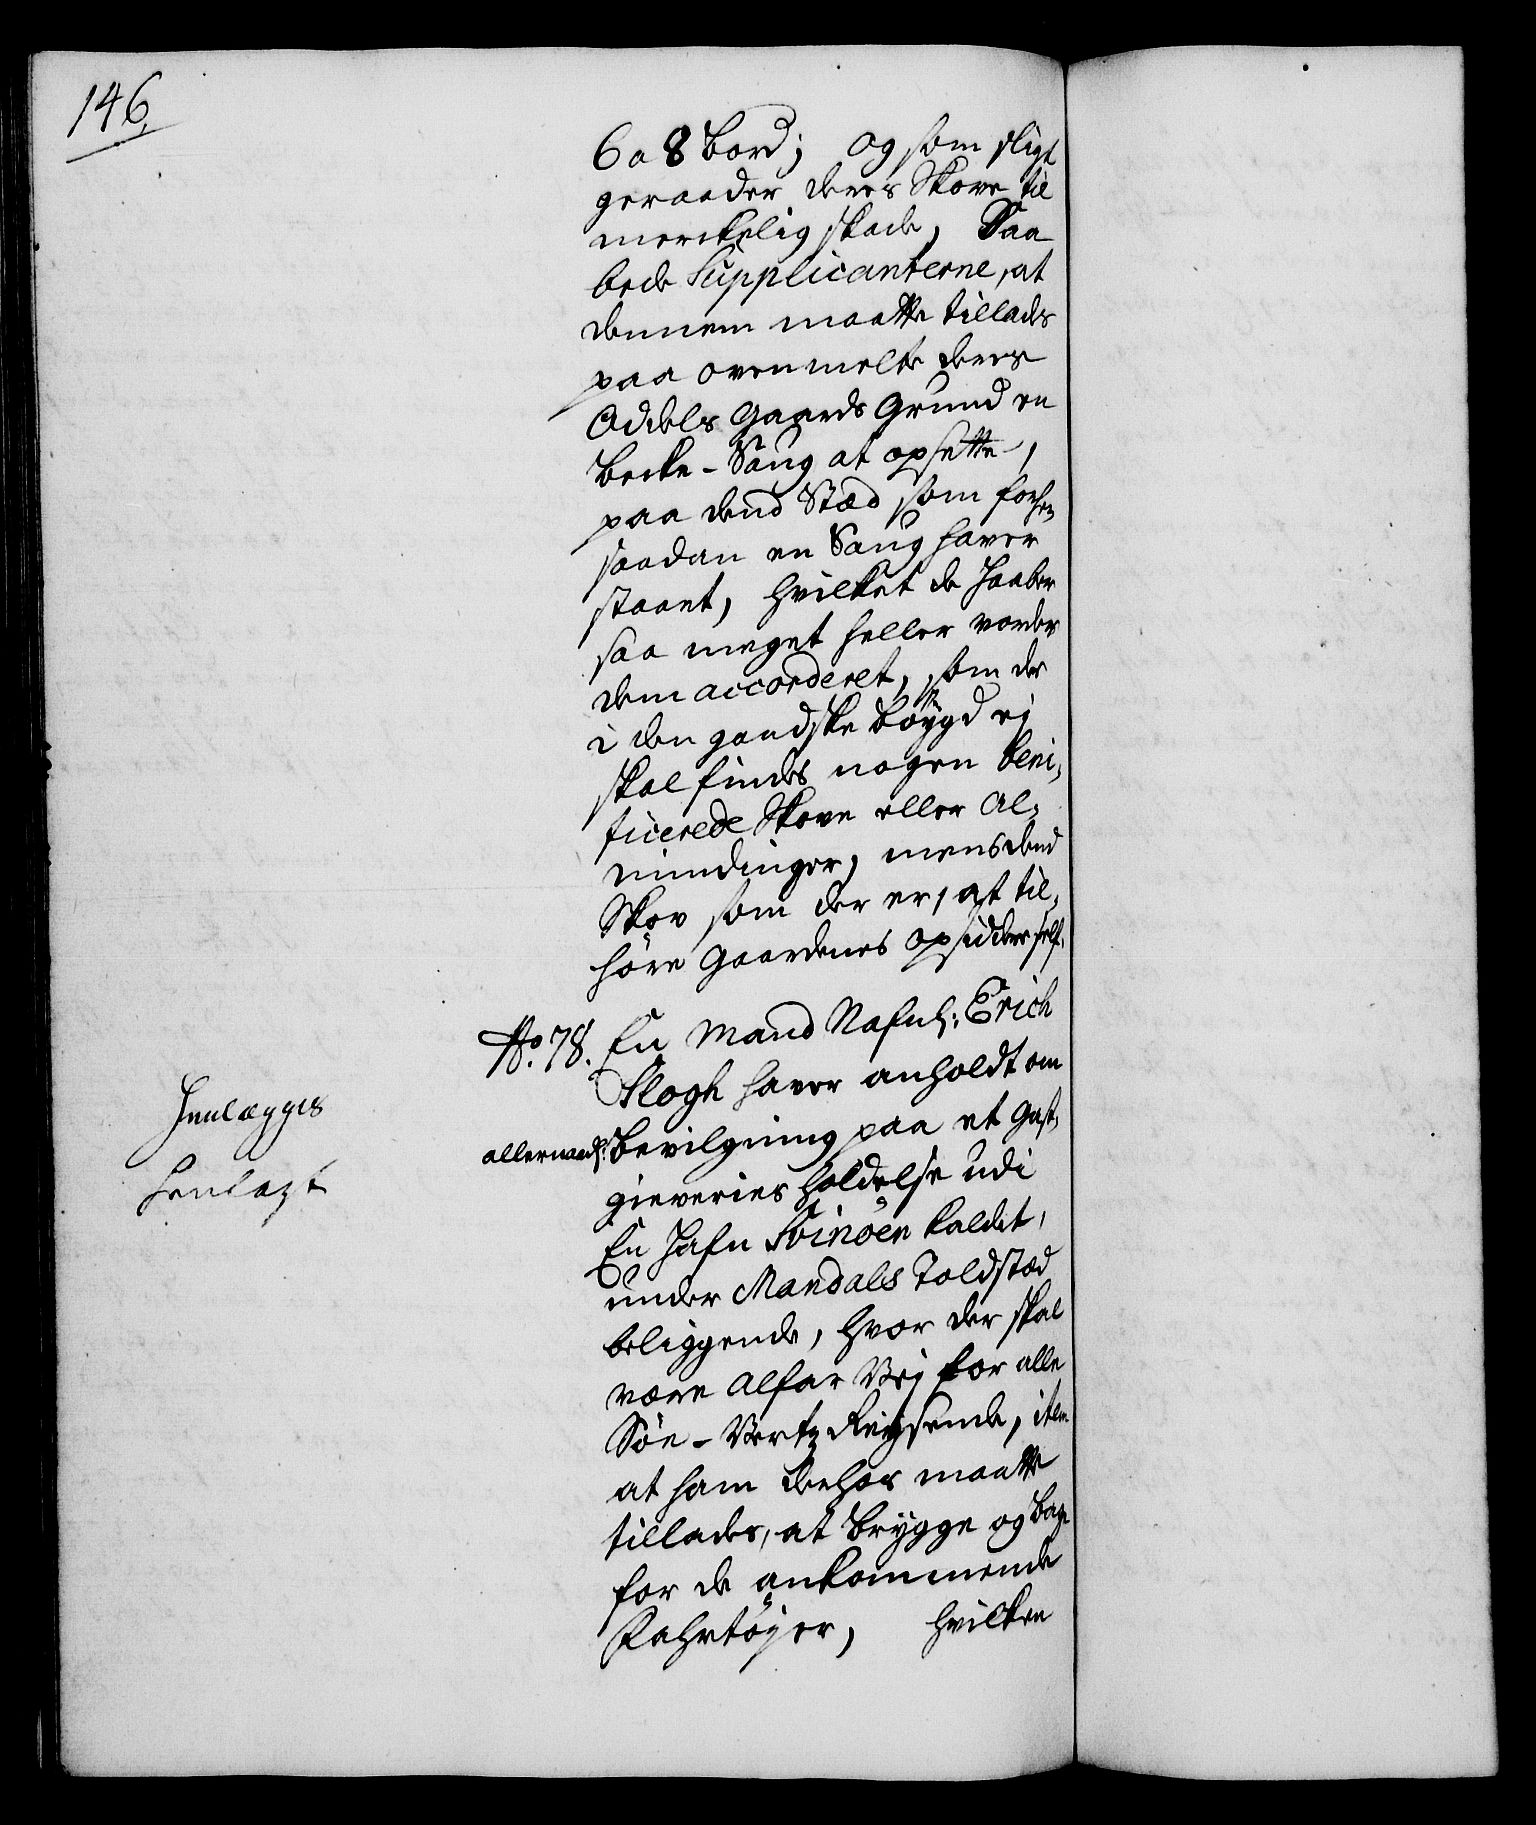 146.
6 a 8 bord; og som sligt
geraader deres Skove til
merckelig skade, Saa
bede Supplicanterne, at
dennem maatte tillades
paa ovenmelte deres
Oddels Gaards Grund en
Becke-Saug at opsette,
paa dend Stæd som forhen
saadan en Saug haver
staaet, hvilket de haaber
saa meget heller vorder
dem accorderet, som der
i den gandske böygd ej
skal findes nogen beni-
ficerede Skove eller Al-
mindinger, mens dend
Skov som der er, at til-
höre Gaardenes opsiddere self.
No. 78. En Mand Nafnl: Erich
Plogh haver anholdt om
allernaad: Bevilgning paa et Gast-
gieveries holdelse udi
En Hafn Svinöen kaldet,
under Mandals Toldstæd
beliggende, hvor der skal
være Alfar Vej for alle
Söe-Verts Reysende, item
at ham derhos maatte
tillades, at brygge og bage
for de ankommende
Fahrtöjer, hvilken
Henlægges
Henlagt